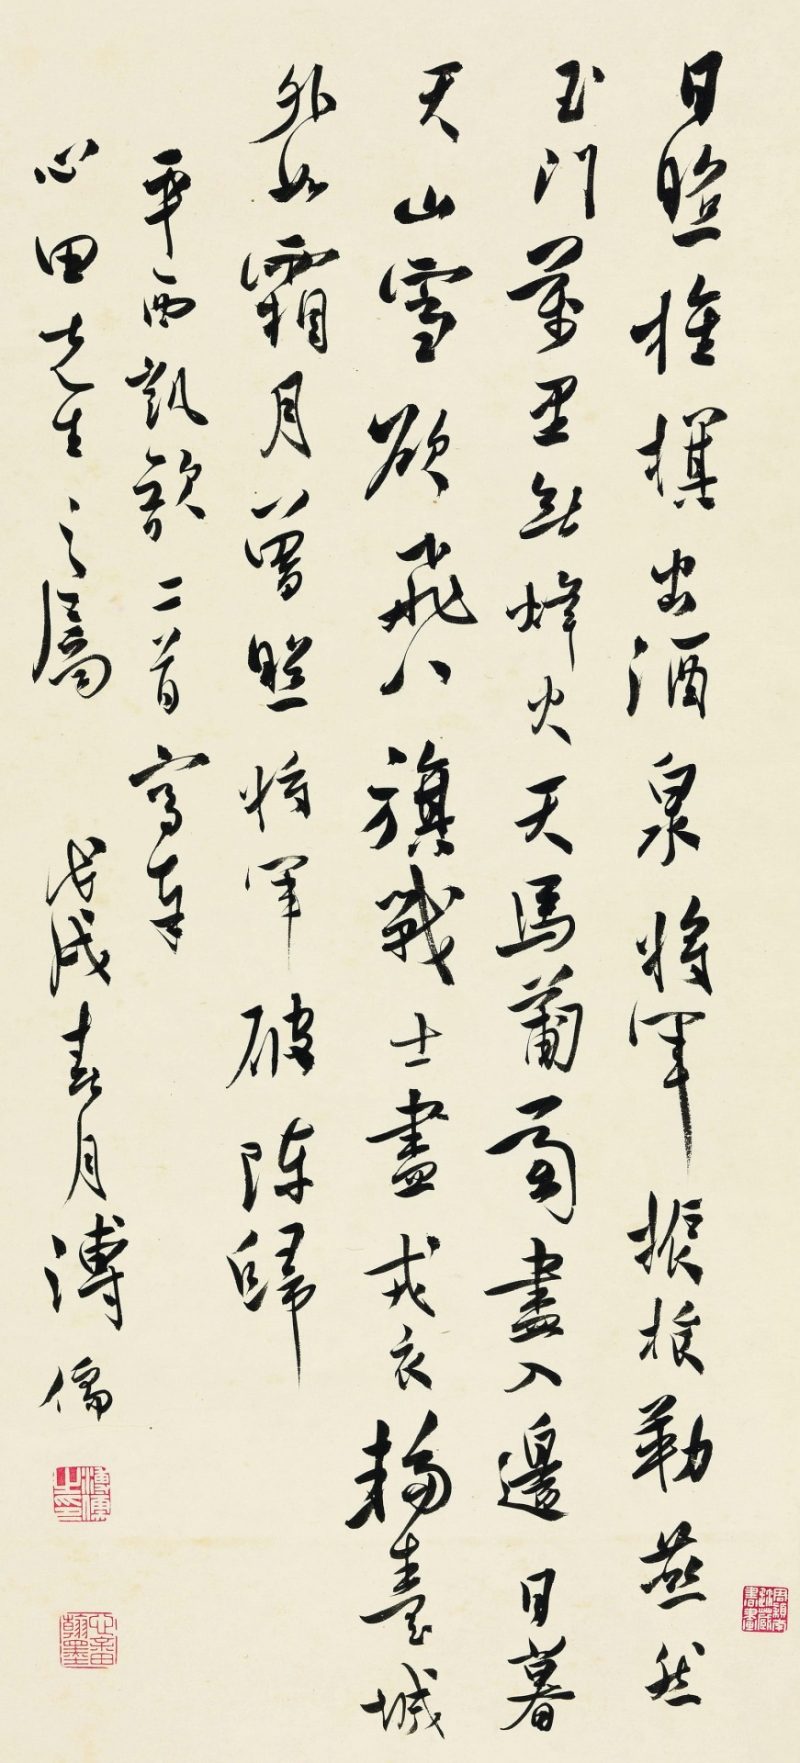 日照旌旗出酒泉將軍振旅勒燕然
玉門萬里無烽火天馬葡萄盡入邊日暮
天山雪欲飛八旗戰士盡戎衣輪臺城
外如霜月曾照將軍破陳歸
平西凱歌二首寫奉
心田先生之屬 戊戌春月溥儒
溥儒之印
心畬翰墨